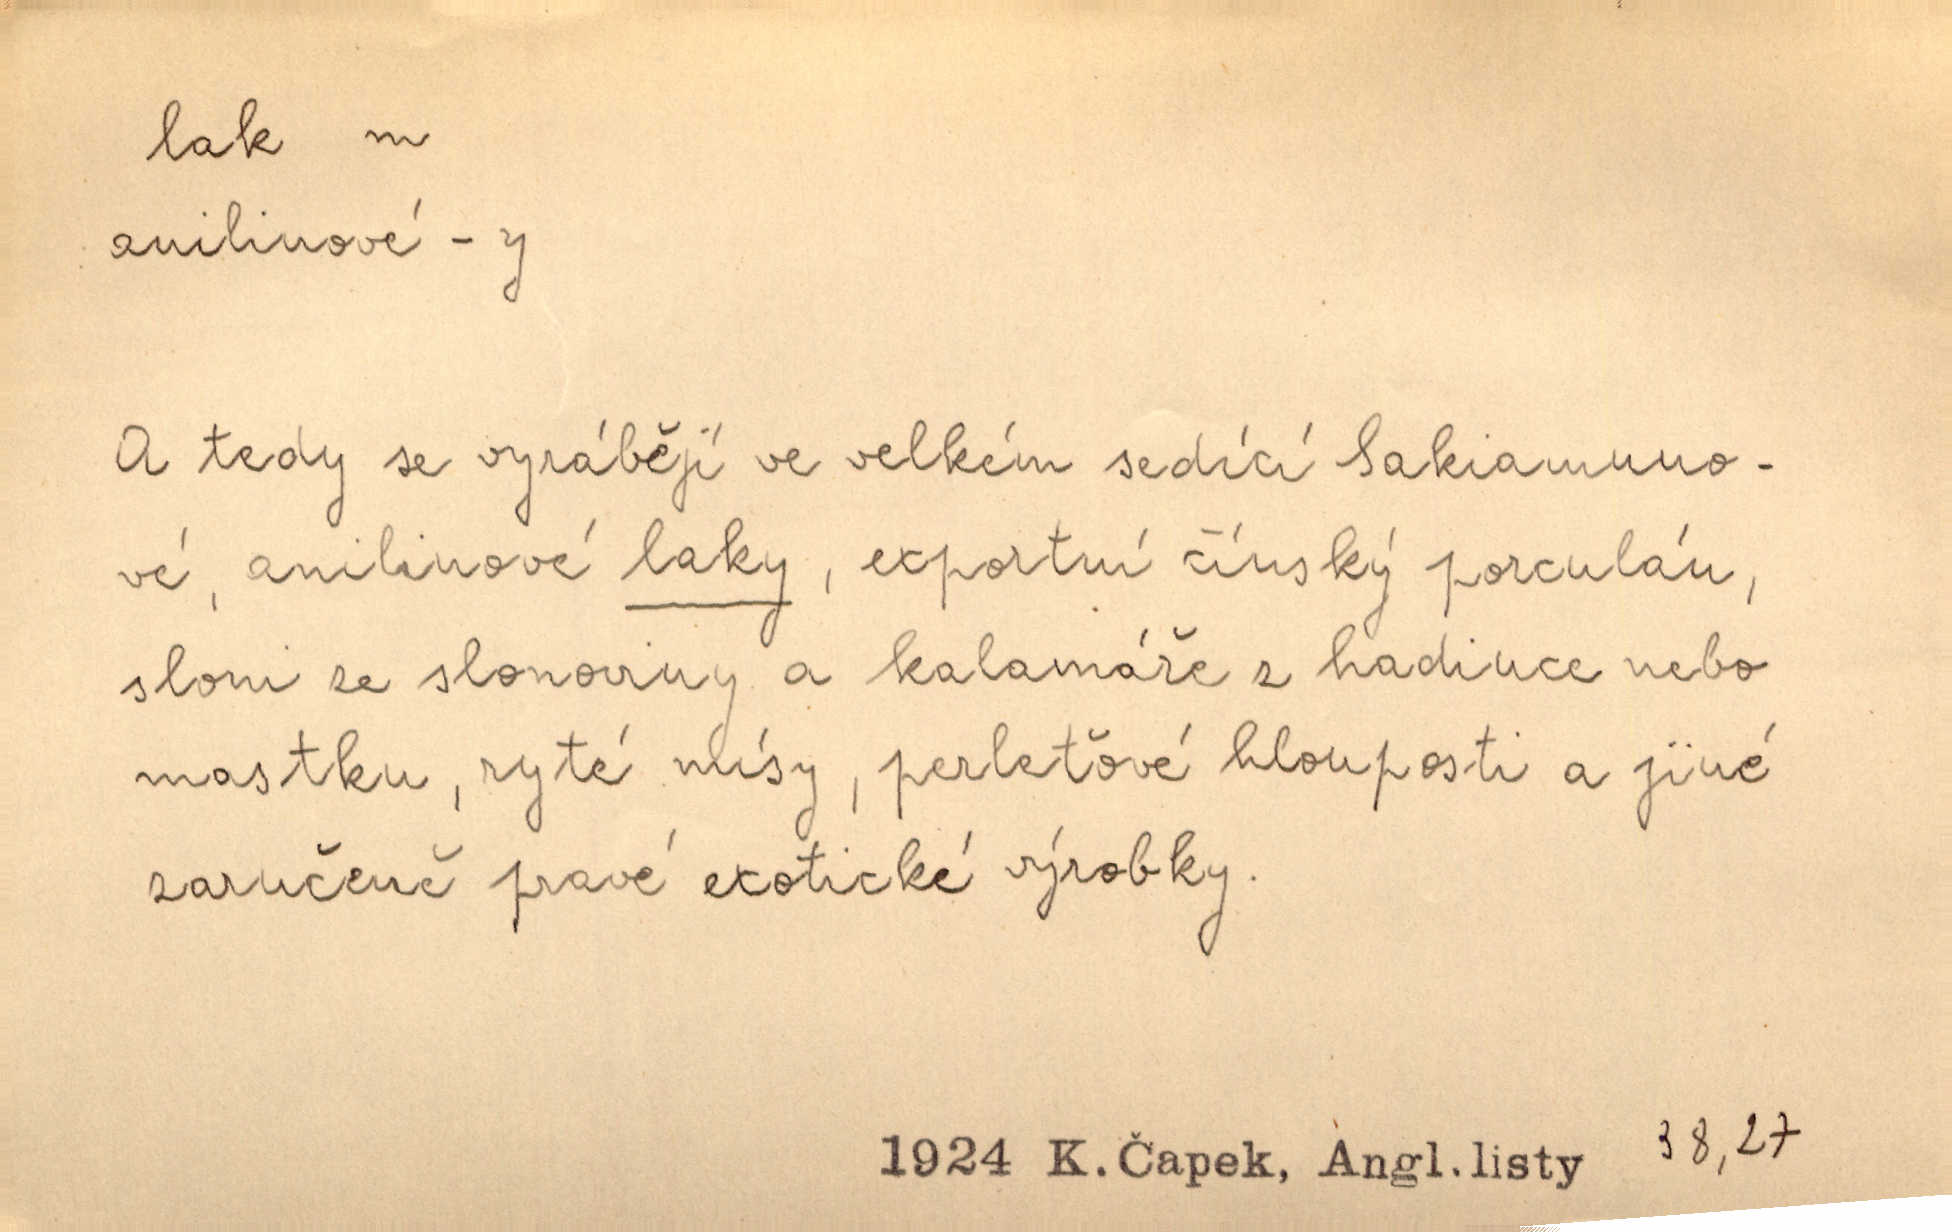 lak m
anilinové -y
A tedy se vyrábějí ve velkém sedící Sakiamuno-
vé, anilinové laky, exportní čínský porculán,
sloni ze slonoviny a kalamáře z hadince nebo
mastku, ryté mísy, perleťové hlouposti a jiné
zaručeně pravé exotické výrobky.
1924 K. Čapek, Angl. listy 38,27